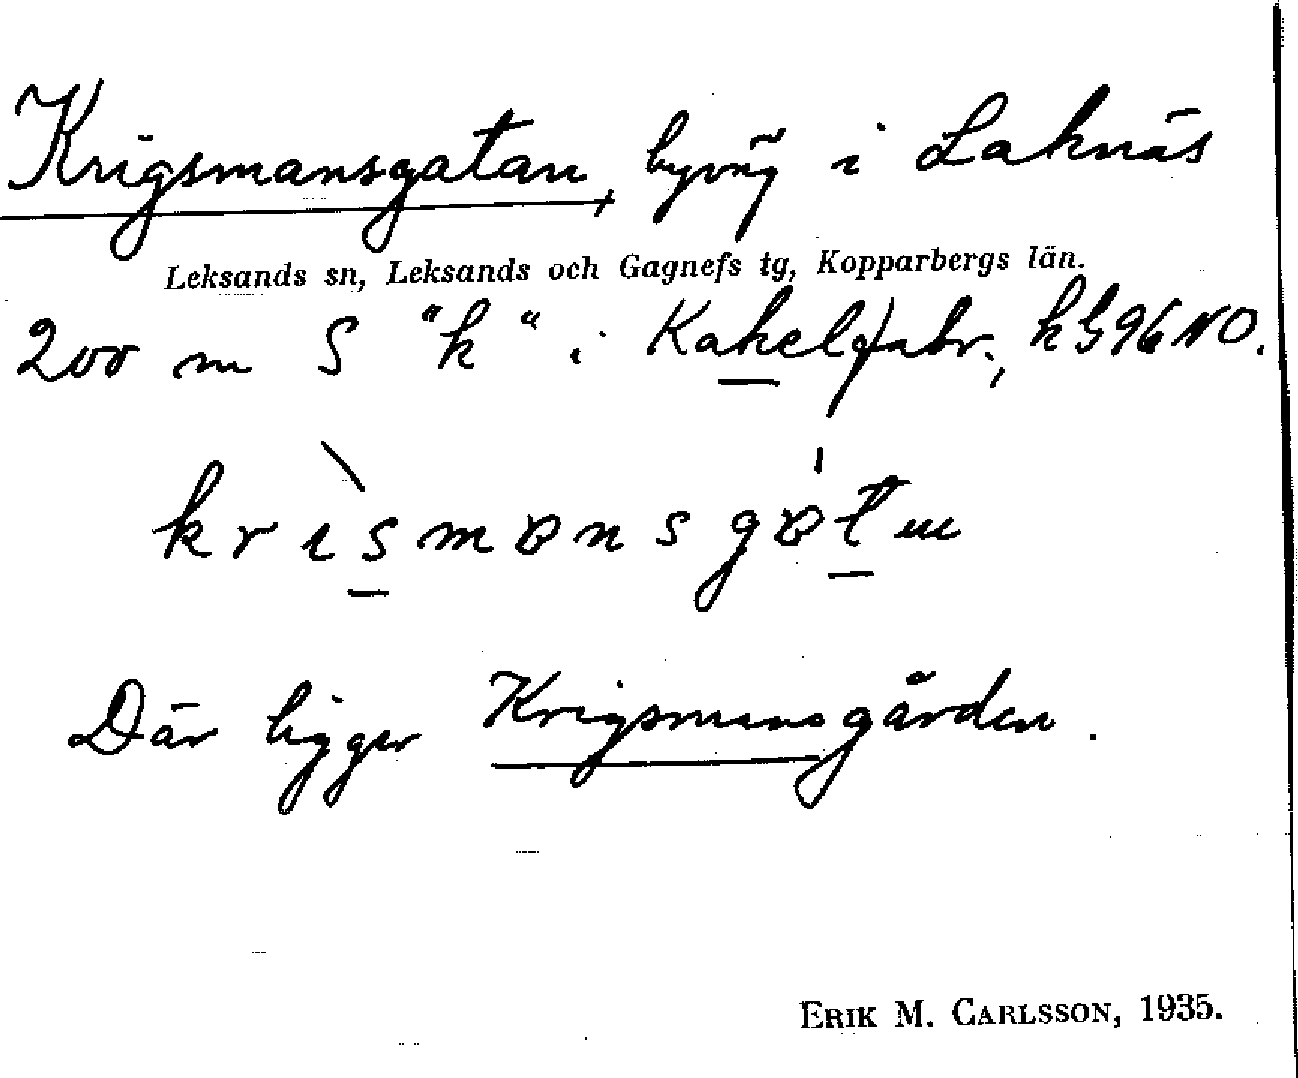 Krigsmansgatan, byväg i Laknäs
Leksands sn, Leksands och Gagnefs tg, Kopparbergs län.
200 m S "k" i Kakelfabr., kb 96 NO.
krismansgatn
Där ligger Krigsmansgården.
ERIK M. CARLSSON, 1935.